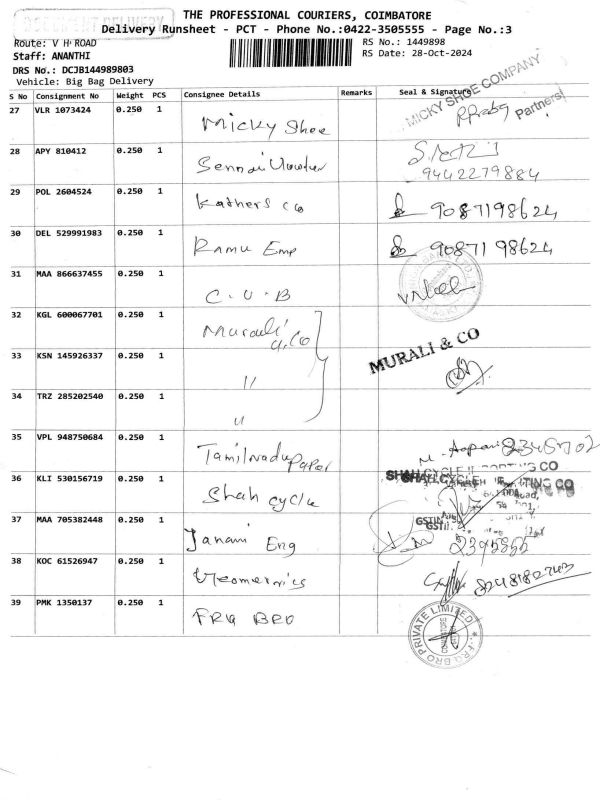 DOCUMENT DELIVERY
THE PROFESSIONAL COURIERS, COIMBATORE
Delivery Runsheet - PCT - Phone No.:0422-3505555 - Page No.:3
Route: V H ROAD
RS No.: 1449898
Staff: ANANTHI
RS Date: 28-Oct-2024
DRS No.: DCJB144989803
Vehicle: Big Bag Delivery
S No Consignment No Weight PCS Consignee Details Remarks Seal & Signature
MICKY SHOE COMPANY
Partners
27 VLR 1073424 0.250 1 Micky Shoe
28 APY 810412 0.250 1
9442279884
29 POL 2604524 0.250 1 Kathers Co 9087198624
30 DEL 529991983 0.250 1 Ramu Emp 9087198624
31 MAA 866637455 0.250 1 C.U.B
32 KGL 600067701 0.250 1 Murali & Co
MURALI & CO
33 KSN 145926337 0.250 1 "
34 TRZ 285202540 0.250 1 "
35 VPL 948750684 0.250 1 Tamilnadu Paper 2345702
36 KLI 530156719 0.250 1 Shah cycle
GSTIN
37 MAA 705382448 0.250 1 Janani Eng 2395855
38 KOC 61526947 0.250 1
39 PMK 1350137 0.250 1 FRG BRO
FRG BRO PRIVATE LIMITED
COIMBATORE